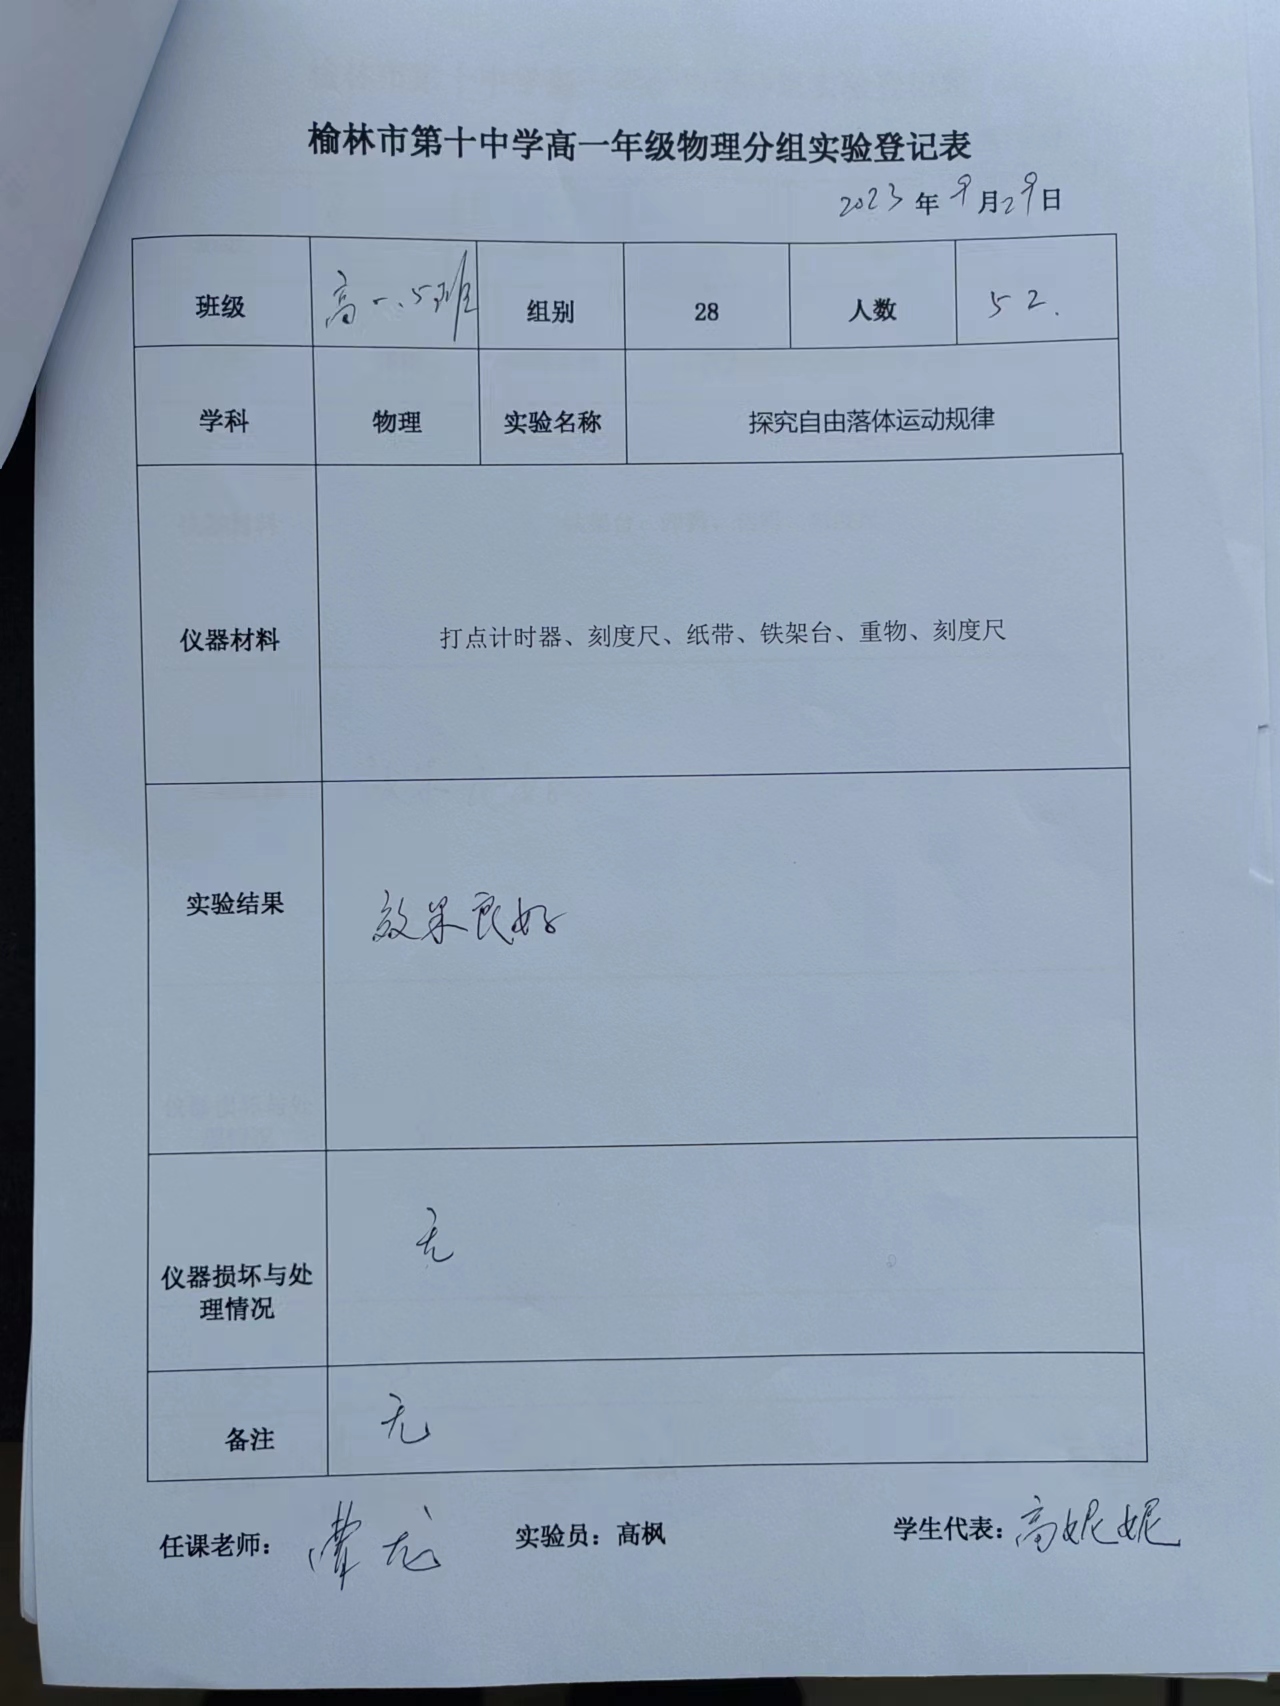 榆林市第十中学高一年级物理分组实验登记表
2023年9月29日
班级 高一.5班 组别 28 人数 52.
学科 物理 实验名称 探究自由落体运动规律
仪器材料 打点计时器、刻度尺、纸带、铁架台、重物、刻度尺
实验结果 效果良好
仪器损坏与处
理情况
无
备注 无
任课老师： 实验员：高枫 学生代表：高妮妮